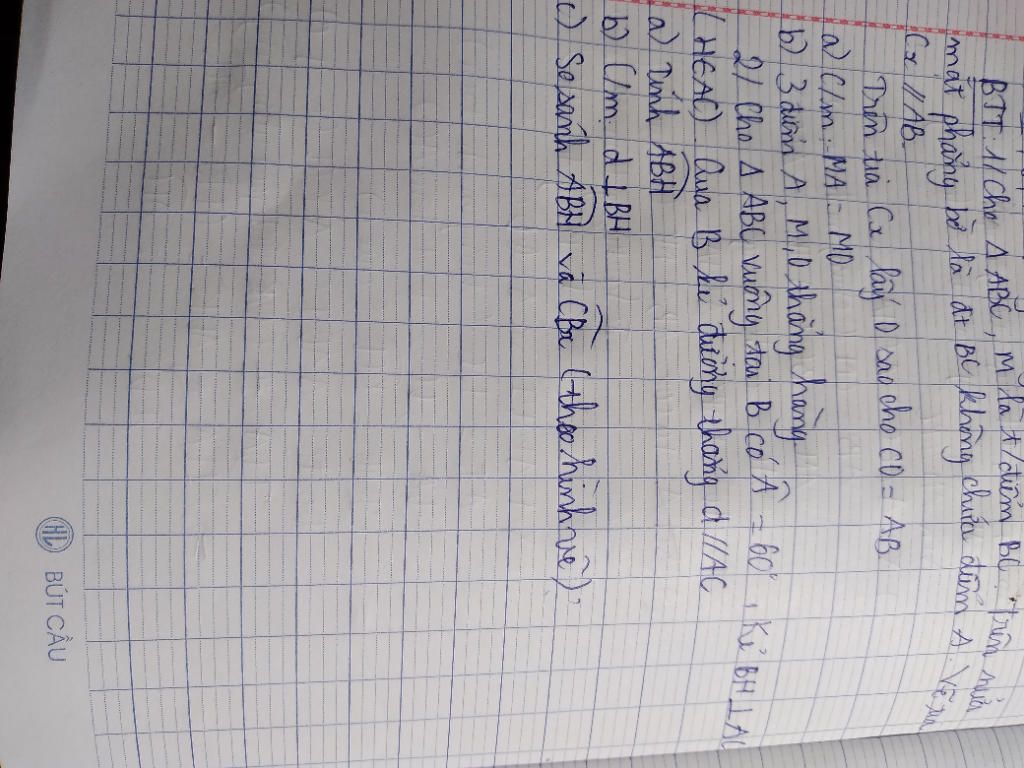 BTT: 1/ Cho Δ ABC, M là t/điểm BC. Trên nửa
mặt phẳng bờ là đt BC không chứa điểm A. Vẽ tia
Cx // AB.
Trên tia Cx, lấy D sao cho CD = AB
a) C/m: MA = MD
b) 3 điểm A, M, D thẳng hàng
2/ Cho Δ ABC vuông tại B có Â = 60°, Kẻ BH ⊥ AC
(H∈AC) Qua B kẻ đường thẳng d // AC
a) Tính ABH
b) C/m: d ⊥ BH
c) So sánh ABH và CBx (theo hình vẽ)
HL BÚT CẦU